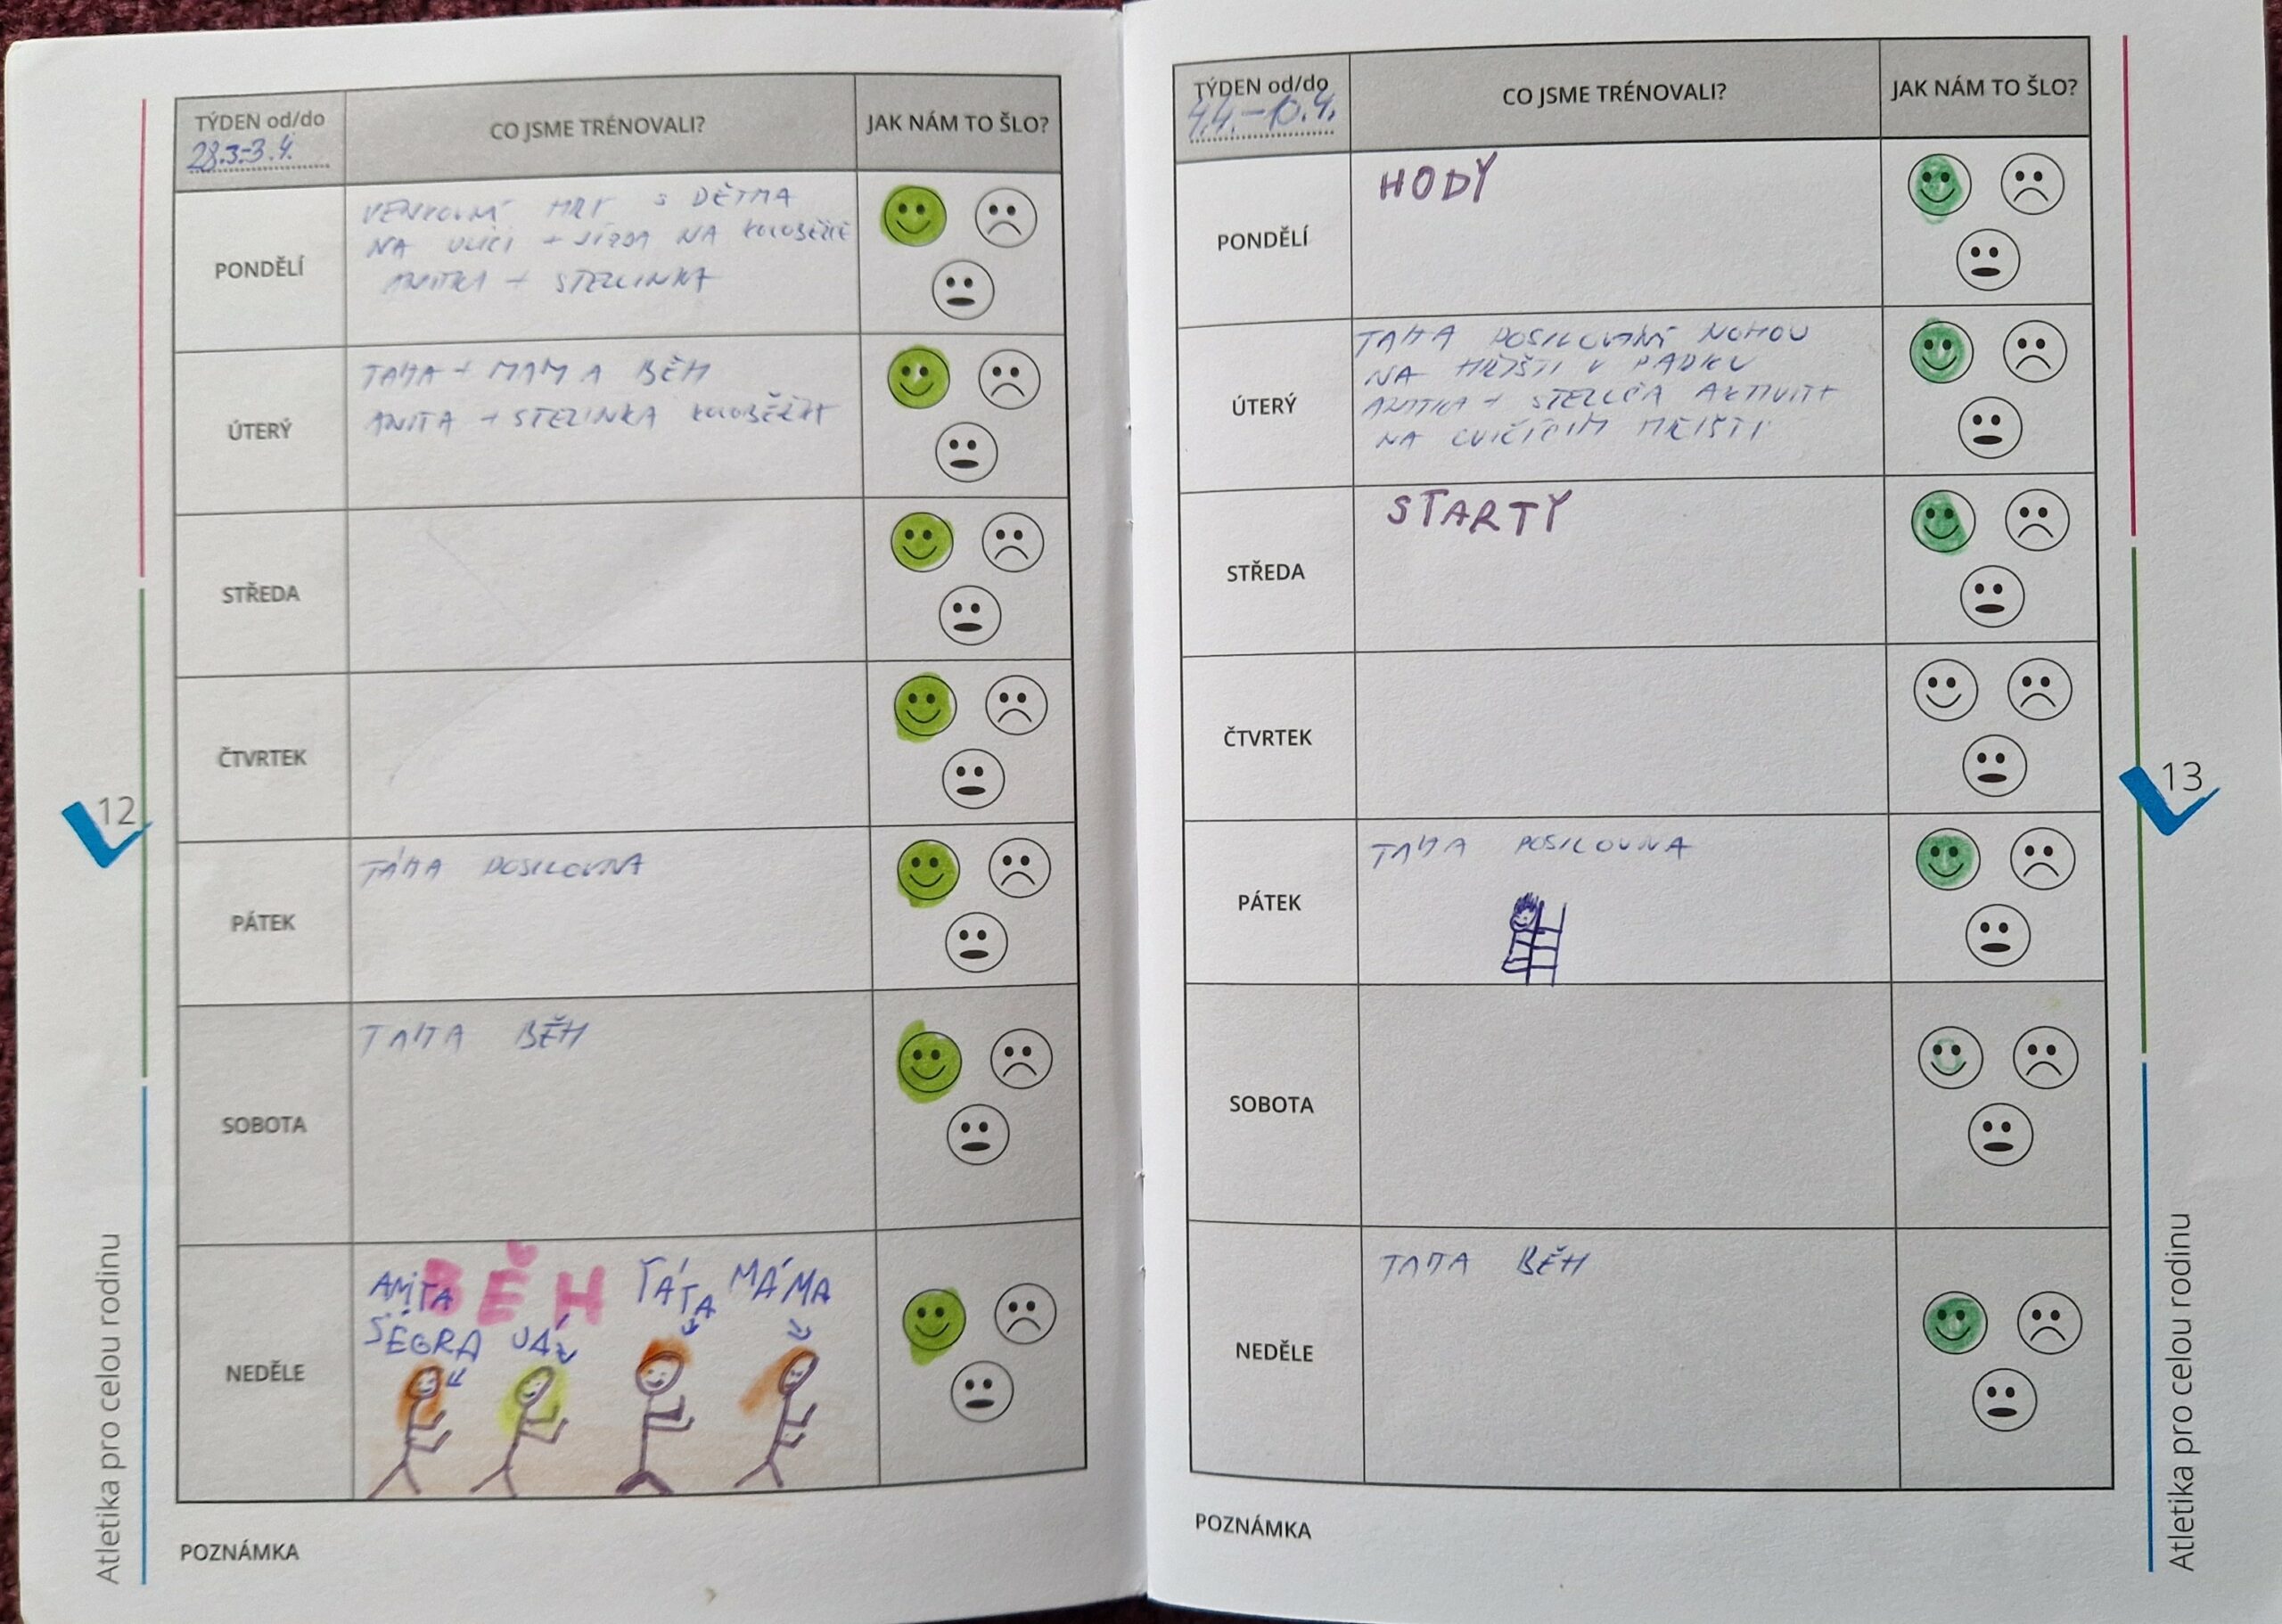 TÝDEN od/do
28.3.-3.4.
CO JSME TRÉNOVALI?
JAK NÁM TO ŠLO?
PONDĚLÍ
VENKOVNÍ HRY S DĚTMA
NA ULICI + JÍZDA NA KOLOBĚŽCE
ANITKA + STELLINKA
ÚTERÝ
TÁTA + MAMA BĚH
ANITA + STELINKA KOLOBĚŽKY
STŘEDA
ČTVRTEK
PÁTEK
TÁTA POSILOVNA
SOBOTA
TÁTA BĚH
NEDĚLE
BĚH
ANITA
SÉGRA
JÁ
TÁTA
MÁMA
POZNÁMKA
12
Atletika pro celou rodinu
TÝDEN od/do
4.4.-10.4.
CO JSME TRÉNOVALI?
JAK NÁM TO ŠLO?
PONDĚLÍ
HODY
ÚTERÝ
TÁTA POSILOVÁNÍ NOHOU
NA HŘIŠTI V PARKU
ANITKA + AKTIVITY
NA CVIČÍCÍM HŘIŠTI
STŘEDA
STARTY
ČTVRTEK
PÁTEK
TÁTA POSILOVNA
SOBOTA
NEDĚLE
TÁTA BĚH
POZNÁMKA
13
Atletika pro celou rodinu